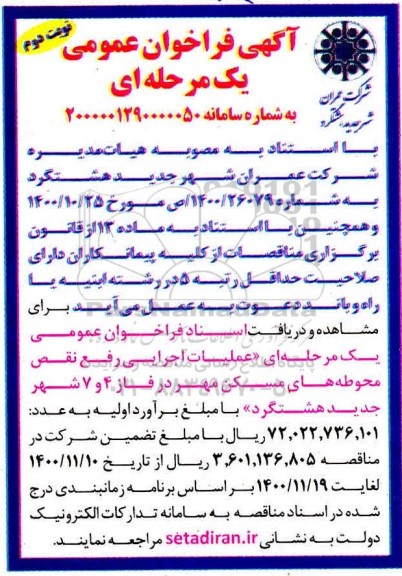 نوبت دوم
آگهی فراخوان عمومی
یک مرحله ای
به شماره سامانه ۲۰۰۰۰۰۱۲۹۰۰۰۰۰۵۰
شرکت عمران
شهر جدید هشتگرد
با استناد به مصوبه هیات‌مدیره
شرکت عمران شهر جدید هشتگرد
به شماره ۱۴۰۰/۲۶۰۷۹/ص مورخ ۱۴۰۰/۱۰/۲۵
و همچنین با استناد به ماده ۱۳ از قانون
برگزاری مناقصات از کلیه پیمانکاران دارای
صلاحیت حداقل رتبه ۵ در رشته ابنیه یا
راه و باند دعوت به عمل می آید برای
مشاهده و دریافت اسناد فراخوان عمومی
یک مرحله ای «عملیات اجرایی رفع نقص
محوطه های مسکن مهر در فاز ۴ و ۷ شهر
جدید هشتگرد» با مبلغ برآورد اولیه به عدد:
۷۲,۰۲۲,۷۳۶,۱۰۱ ریال با مبلغ تضمین شرکت در
مناقصه ۳,۶۰۱,۱۳۶,۸۰۵ ریال از تاریخ ۱۴۰۰/۱۱/۱۰
لغایت ۱۴۰۰/۱۱/۱۹ بر اساس برنامه زمانبندی درج
شده در اسناد مناقصه به سامانه تدارکات الکترونیک
دولت به نشانی setadiran.ir مراجعه نمایند.